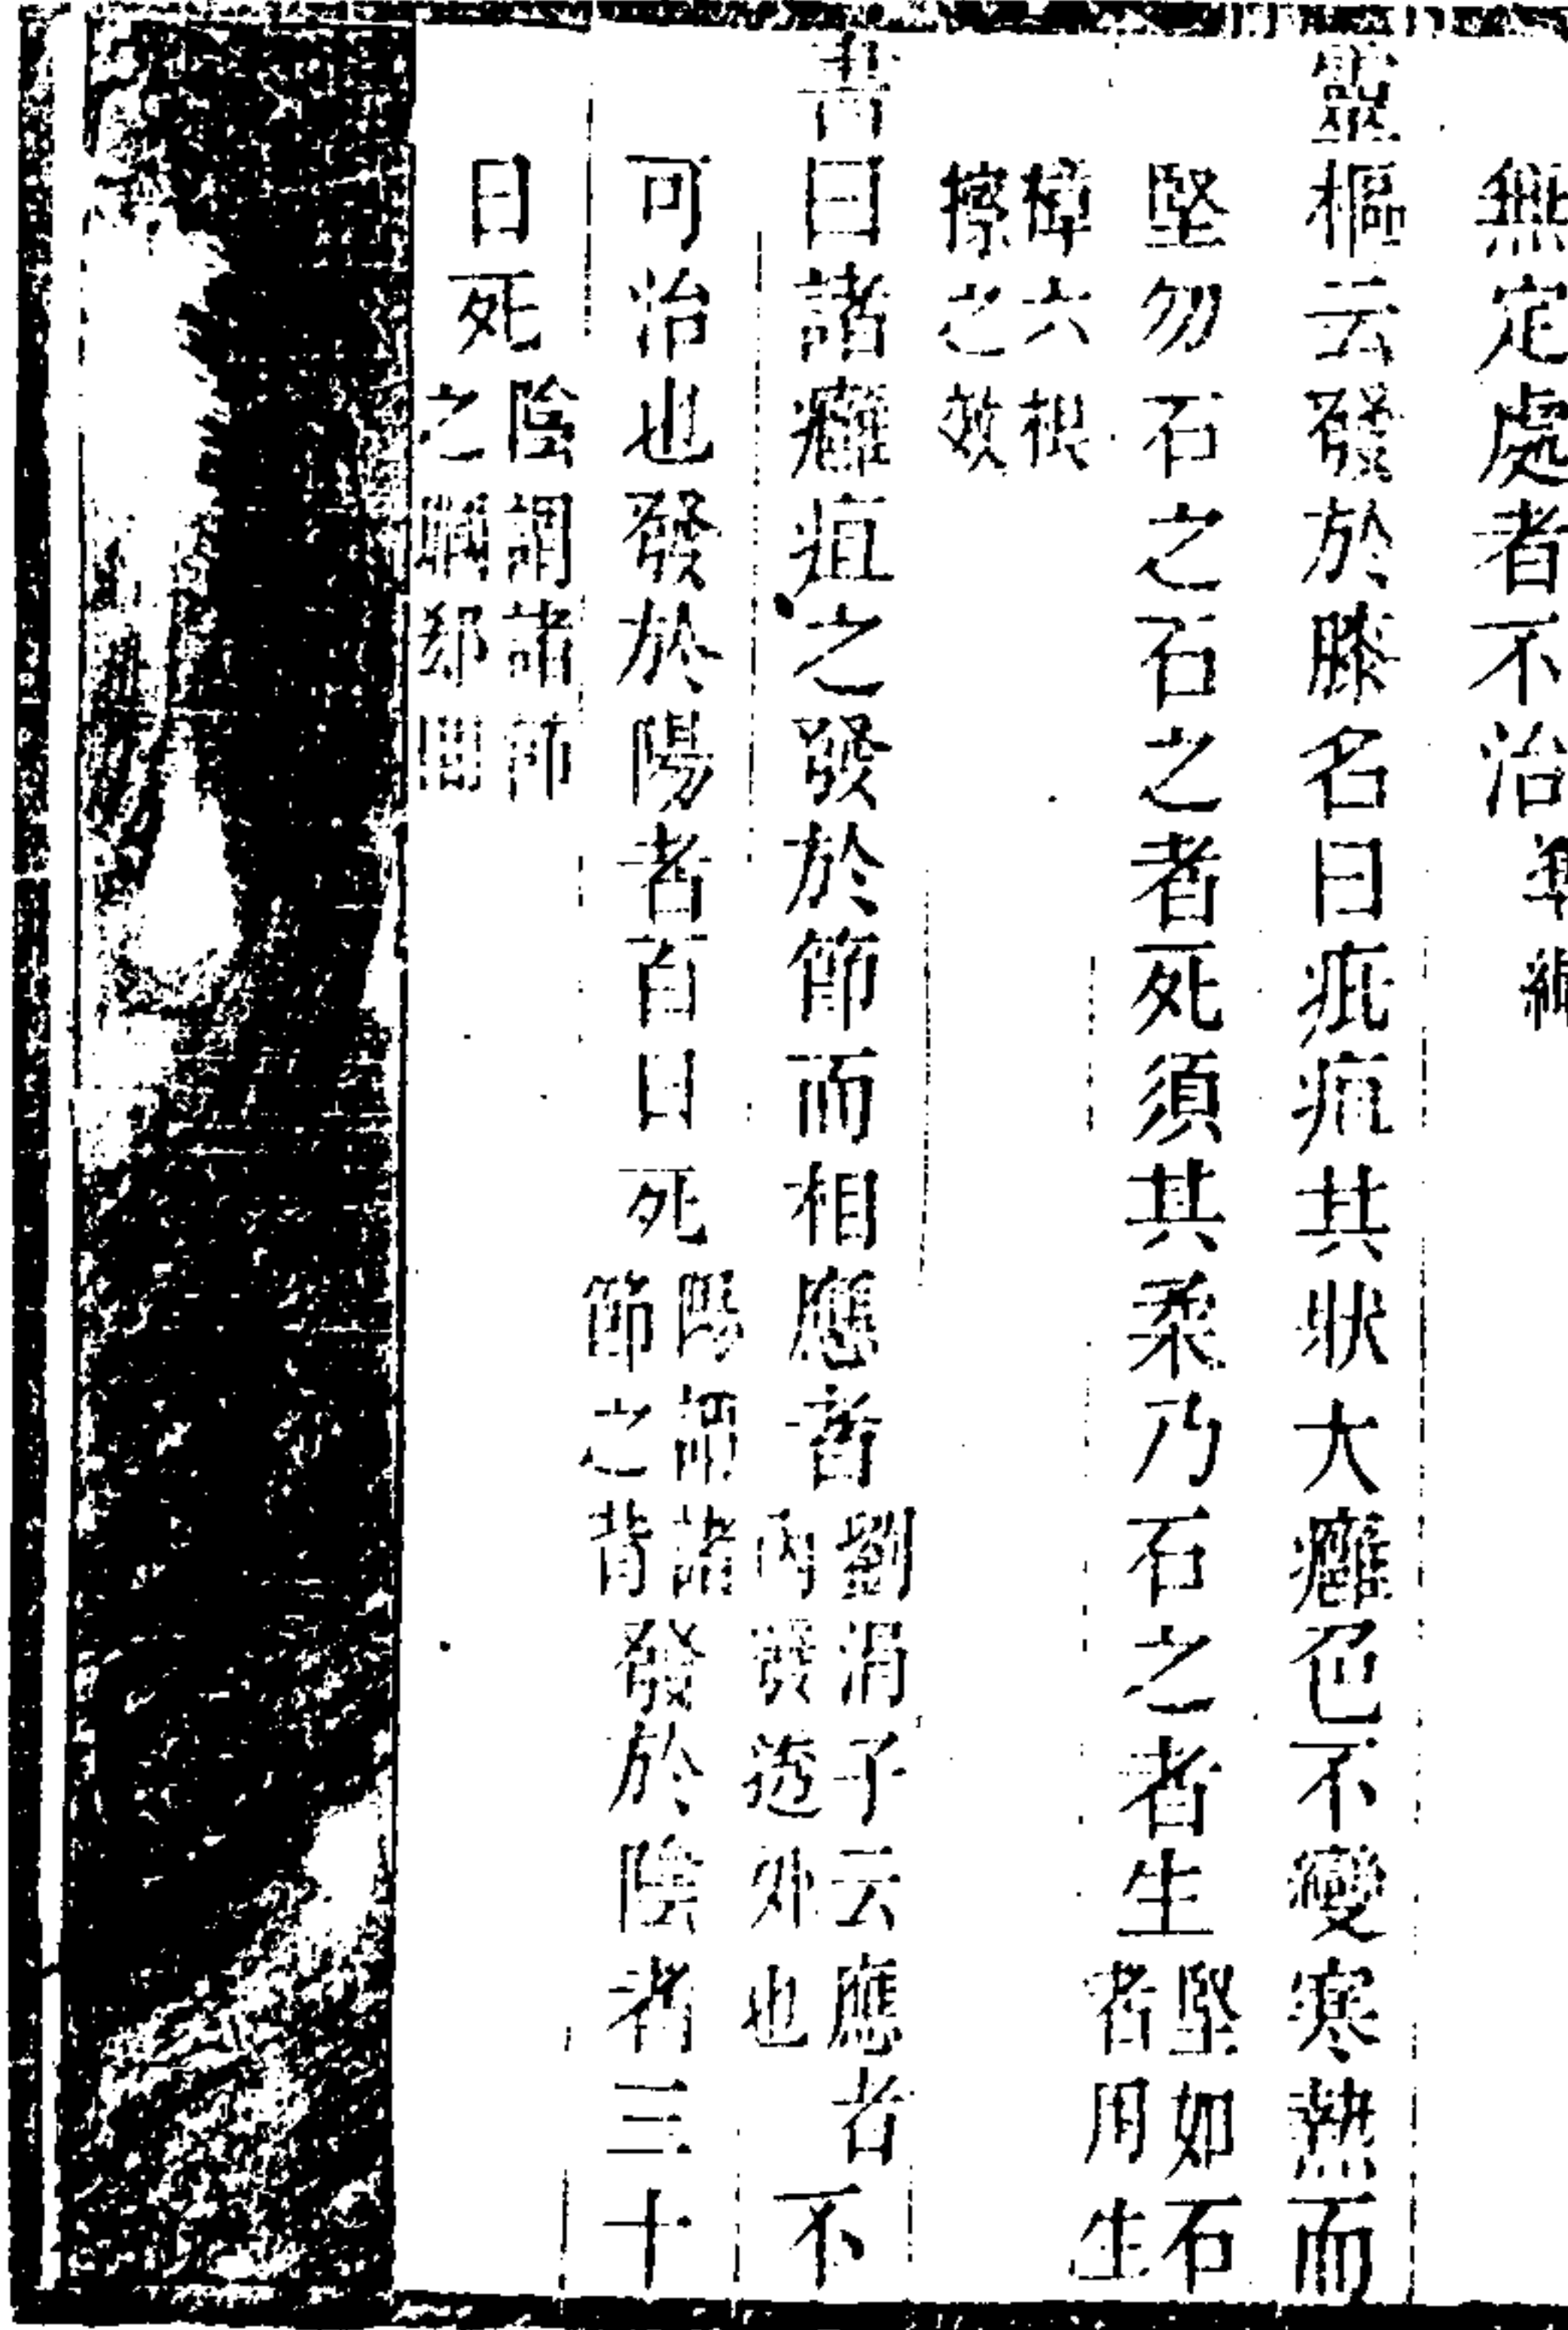 無定處者不治
靈樞云發於膝名曰疵疽其狀大癰色不變寒熱而
堅勿石之石之者死須其柔乃石之者生堅如石者用生
樟六根擦之效
書曰諸癰疽之發於節而相應者劉涓子云應者內發透外也不
可治也發於陽者百日死陽謂諸節之背發於陰者三十
日死陰謂諸節之